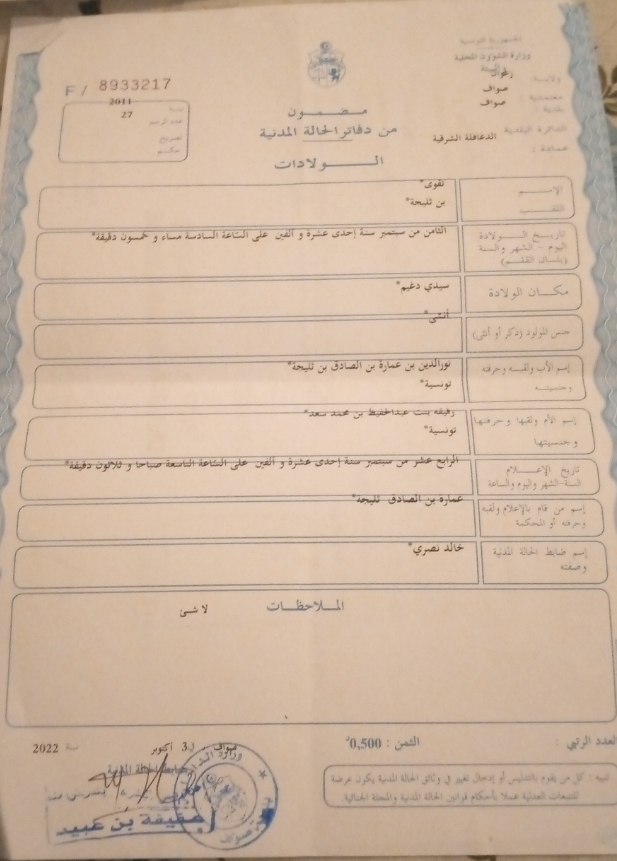 الجمهورية التونسية
وزارة الشؤون المحلية
والبيئة
ولاية : زغوان
معتمدية : صواف
بلدية : صواف
الدائرة البلدية
عمادة : الدغافلة الشرقية
F / 8933217
سنة 2011
عدد الرسم 27
تصريح
حكم
مضمون
من دفاتر الحالة المدنية
الولادات
الاسم تقوى*
اللقب بن ثليجة*
تاريخ الولادة
اليوم - الشهر والسنة
(بلسان القلم)
الثامن من سبتمبر سنة إحدى عشرة و ألفين على الساعة السادسة مساء و خمسون دقيقة*
مكان الولادة سيدي دغيم*
جنس المولود (ذكر أو أنثى) أنثى*
إسم الأب ولقبه وحرفته نورالدين بن عمارة بن الصادق بن ثليجة*
وجنسيته تونسية*
إسم الأم ولقبها وحرفتها رفيقه بنت عبدالحفيظ بن محمد سعد*
وجنسيتها تونسية*
تاريخ الإعلام
السنة-الشهر واليوم والساعة
الرابع عشر من سبتمبر سنة إحدى عشرة و ألفين على الساعة التاسعة صباحا و ثلاثون دقيقة*
إسم من قام بالإعلام ولقبه عمارة بن الصادق ثليجة*
وحرفته أو المحكمة
إسم ضابط الحالة المدنية خالد نصري*
وصفته
الملاحظات
لا شئ
العدد الرتبي :
الثمن : 0,500
صواف ، في 3 أكتوبر سنة 2022
ضابط الحالة المدنية
تنبيه : كل من يقوم بالتدليس أو إدخال تغيير في وثائق الحالة المدنية يكون عرضة
للتتبعات العدلية عملا بأحكام قوانين الحالة المدنية والمجلة الجنائية.
بن عبيد